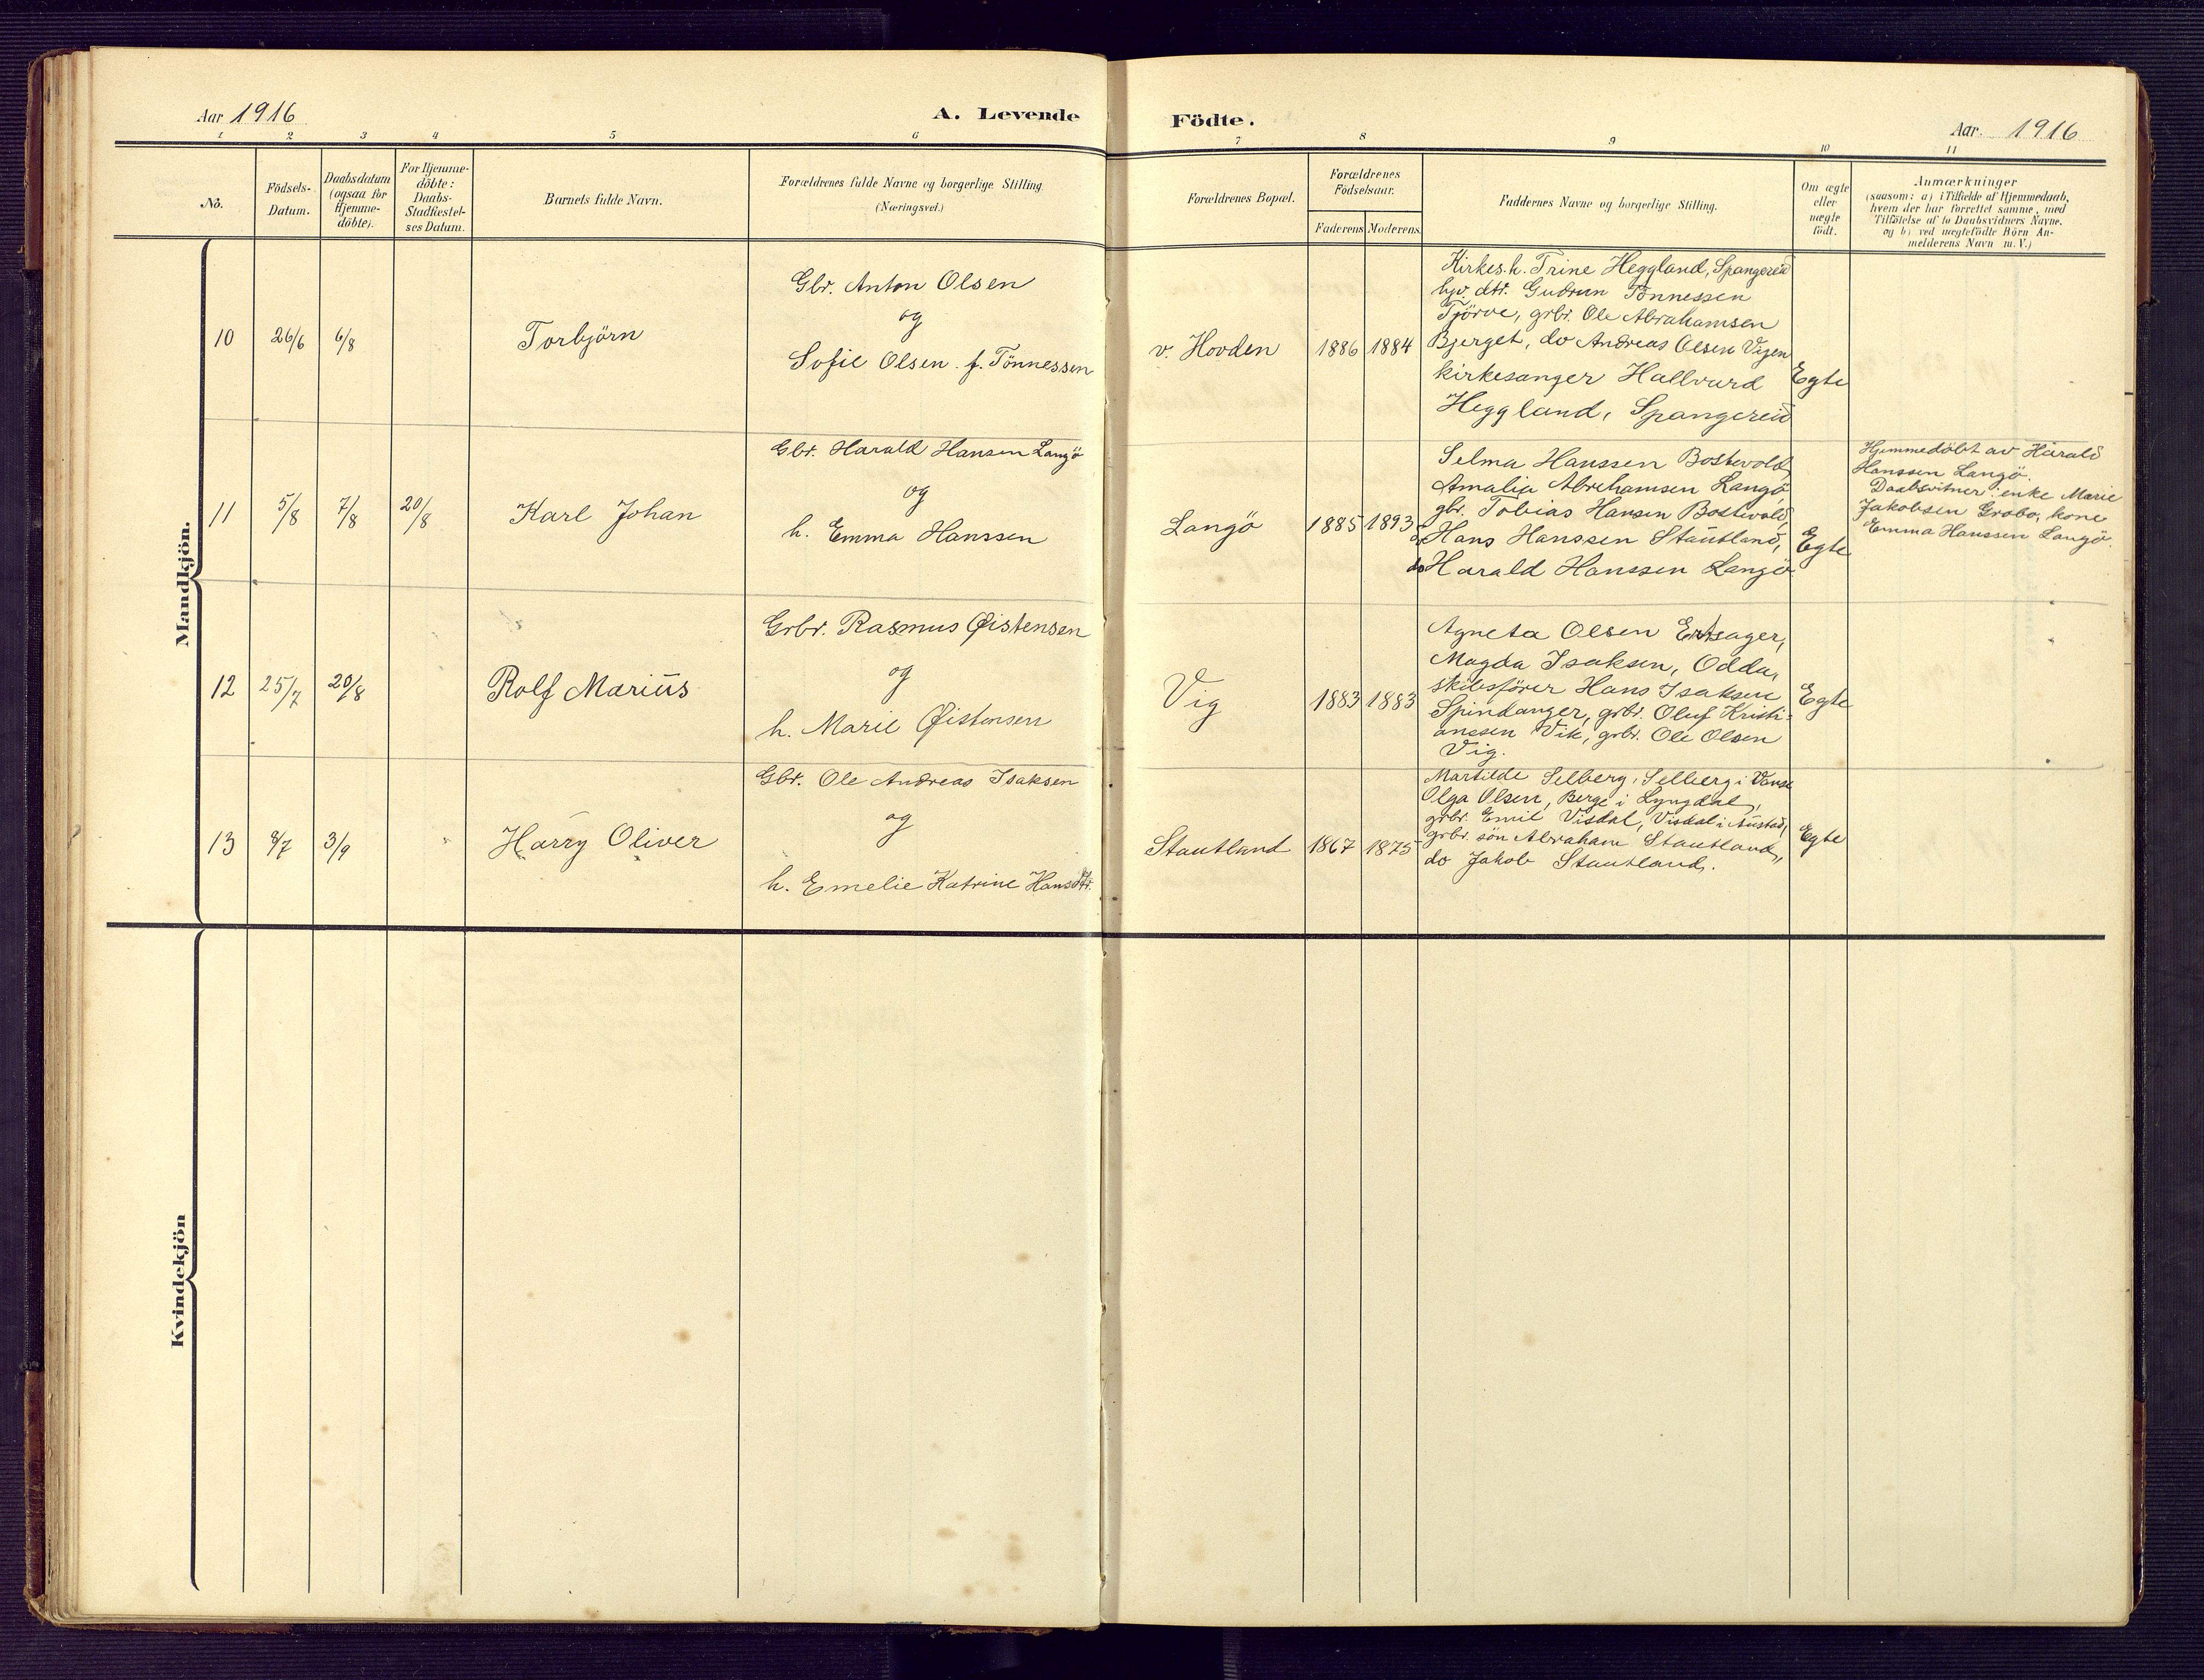 Aar 1916
A. Levende
Födte.
Aar. 1916
1 2 3 4 5 6 7 8 9 10 11
No.
Födsels-
Datum.
Daabsdatum
(ogsaa for
Hjemme-
döbte).
For Hjemme-
döbte:
Daabs-
Stadfæstel-
ses Datum.
Barnets fulde Navn.
Forældrenes fulde Navne og borgerlige Stilling
(Næringsvei.)
Forældrenes Bopæl.
Forældrenes
Födselsaar.
Faderens
Moderens.
Faddernes Navne og borgerlige Stilling.
Om ægte
eller
uægte
födt.
Anmærkninger
(saasom: a) i Tilfælde af Hjemmedaab,
hvem der har forrettet samme, med
Tilföielse af to Daabsvidners Navne,
og b) ved uægtefödte Börn An-
melderens Navn m. V.)
Mandkjön.
10
26/6
6/8
Torbjörn
Gbr. Anton Olsen
og
Sofie Olsen f. Tönnessen
v. Hovden
1886
1884
Kirkes.h. Trine Heggland, Spangereid
dtr. Gudrun Tönnessen
Tjörve, grbr. Ole Abrahamsen
Bjerget, do Andreas Olsen Vigen
kirkesanger Hallvard
Heggland, Spangereid
Egte
11
5/8
7/8
20/8
Karl Johan
Gbr. Harald Hansen Langö
og
h. Emma Hanssen
Langö
1885
1893
Selma Hanssen Bostwold,
Amalia Abrahamsen Langö,
gbr. Tobias Hansen Bostwold,
Hans Hanssen Stautland,
do Harald Hanssen Langö
Egte
Hjemmedöbt av Harald
Hanssen Langö.
Daabsvitner: enke Marie
Jakobsen Grobo, kone
Emma Hanssen Langö.
12
25/7
20/8
Rolf Marius
Grbr. Rasmus Øistensen
og
h. Marie Øistensen
Vig
1883
1883
Agneta Olsen
Magda Isaksen, Odda,
skibsförer Hans Isaksen
Spindanger, grbr. Oluf Kristi-
anssen Vik, grbr. Ole Olsen
Vig.
Egte
13
9/7
3/9
Harry Oliver
Gbr. Ole Andreas Isaksen
og
h. Emelie Katrine Hansdtr.
Stautland
1867
1875
Martilde Selberg, Selberg i Vanse
Olga Olsen, Berge i Lyngdal,
grbr. Emil Visdal, Visdal i Austad,
grbr. sön Abraham Stautland,
do Jakob Stautland.
Egte
Kvindekjön